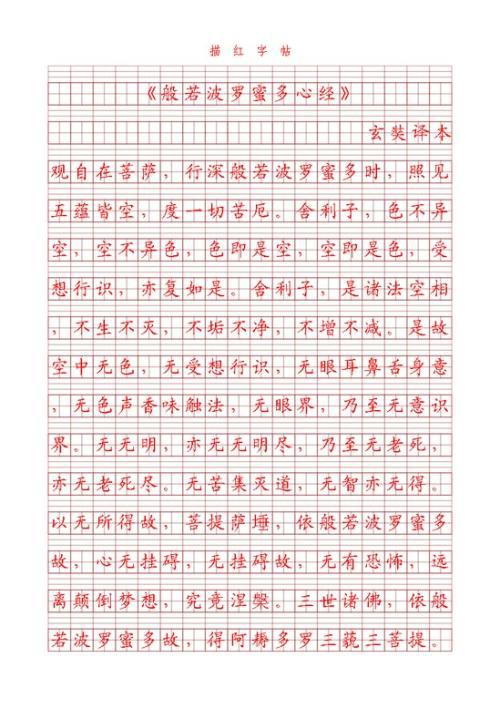 描红字帖
《般若波罗蜜多心经》
玄奘译本
观自在菩萨，行深般若波罗蜜多时，照见
五蕴皆空，度一切苦厄。舍利子，色不异
空，空不异色，色即是空，空即是色，受
想行识，亦复如是。舍利子，是诸法空相
，不生不灭，不垢不净，不增不减。是故
空中无色，无受想行识，无眼耳鼻舌身意
，无色声香味触法，无眼界，乃至无意识
界。无无明，亦无无明尽，乃至无老死，
亦无老死尽。无苦集灭道，无智亦无得。
以无所得故，菩提萨埵，依般若波罗蜜多
故，心无挂碍，无挂碍故，无有恐怖，远
离颠倒梦想，究竟涅槃。三世诸佛，依般
若波罗蜜多故，得阿耨多罗三藐三菩提。